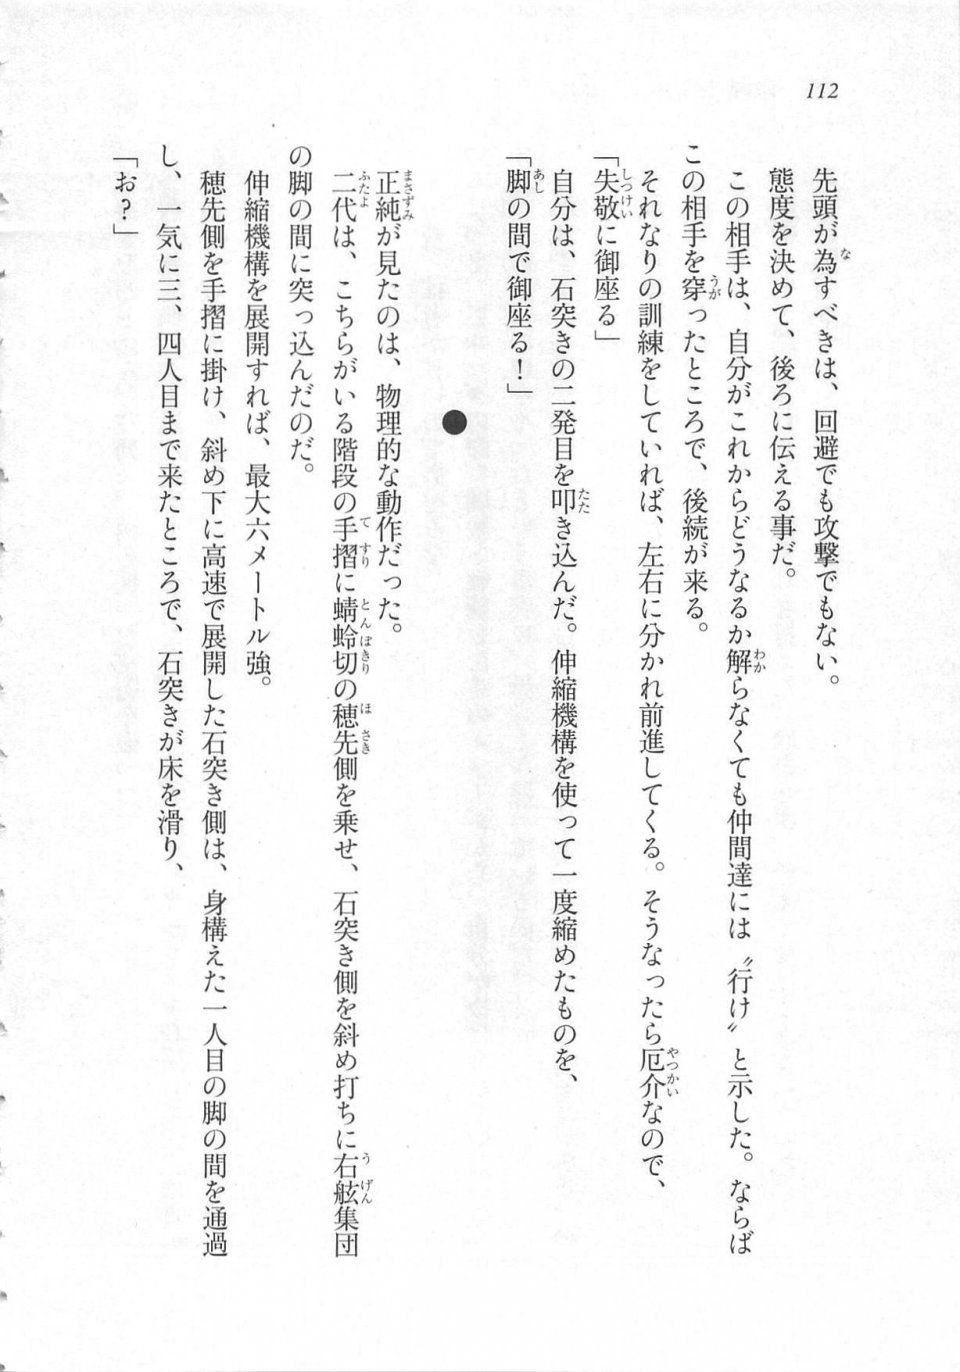 112
先頭が為すべきは、回避でも攻撃でもない。
態度を決めて、後ろに伝える事だ。
この相手は、自分がこれからどうなるか解らなくても仲間達には〝行け〟と示した。ならば
この相手を穿ったところで、後続が来る。
それなりの訓練をしていれば、左右に分かれ前進してくる。そうなったら厄介なので、
「失敬に御座る」
自分は、石突きの二発目を叩き込んだ。伸縮機構を使って一度縮めたものを、
「脚の間で御座る！」
●
正純が見たのは、物理的な動作だった。
二代は、こちらがいる階段の手摺に蜻蛉切の穂先側を乗せ、石突き側を斜め打ちに右舷集団
の脚の間に突っ込んだのだ。
伸縮機構を展開すれば、最大六メートル強。
穂先側を手摺に掛け、斜め下に高速で展開した石突き側は、身構えた一人目の脚の間を通過
し、一気に三、四人目まで来たところで、石突きが床を滑り、
「お？」